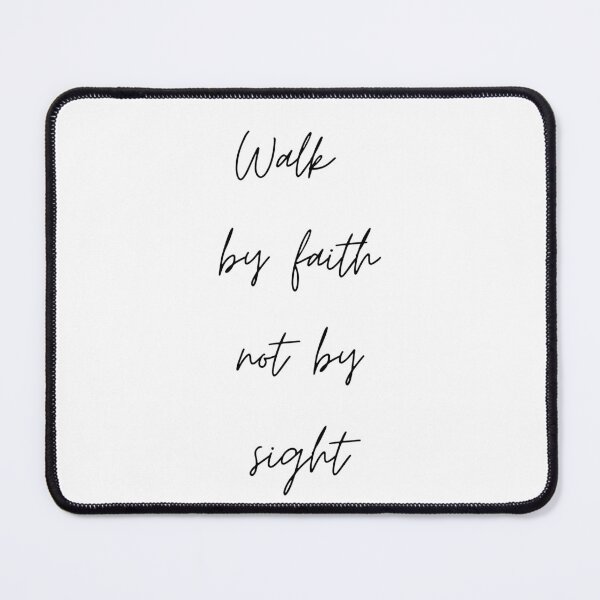 Walk
by faith
not by
sight